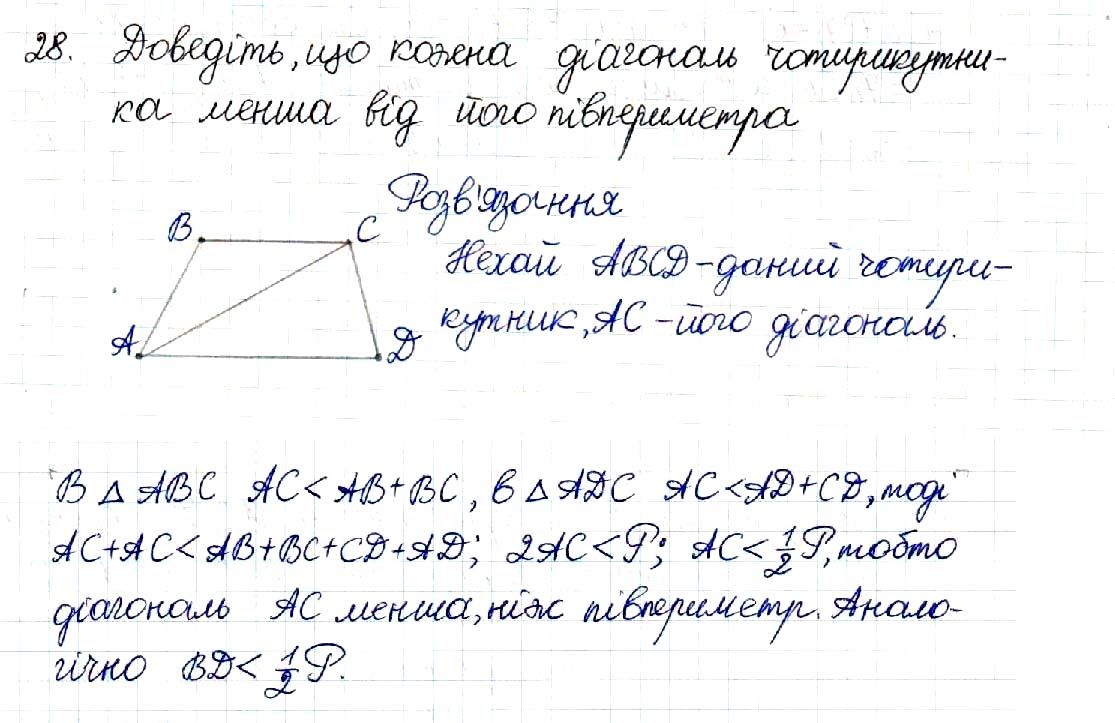 28. Доведіть, що кожна діагональ чотирикутни-
ка менша від його півпериметра
Розв'язання
B C
Нехай ABCD - даний чотири-
кутник, AC - його діагональ.
A D
В △ ABC AC < AB + BC, в △ ADC AC < AD + CD, тоді
AC + AC < AB + BC + CD + AD; 2AC < P; AC < 1/2 P, тобто
діагональ AC менша, ніж півпериметр. Анало-
гічно BD < 1/2 P.